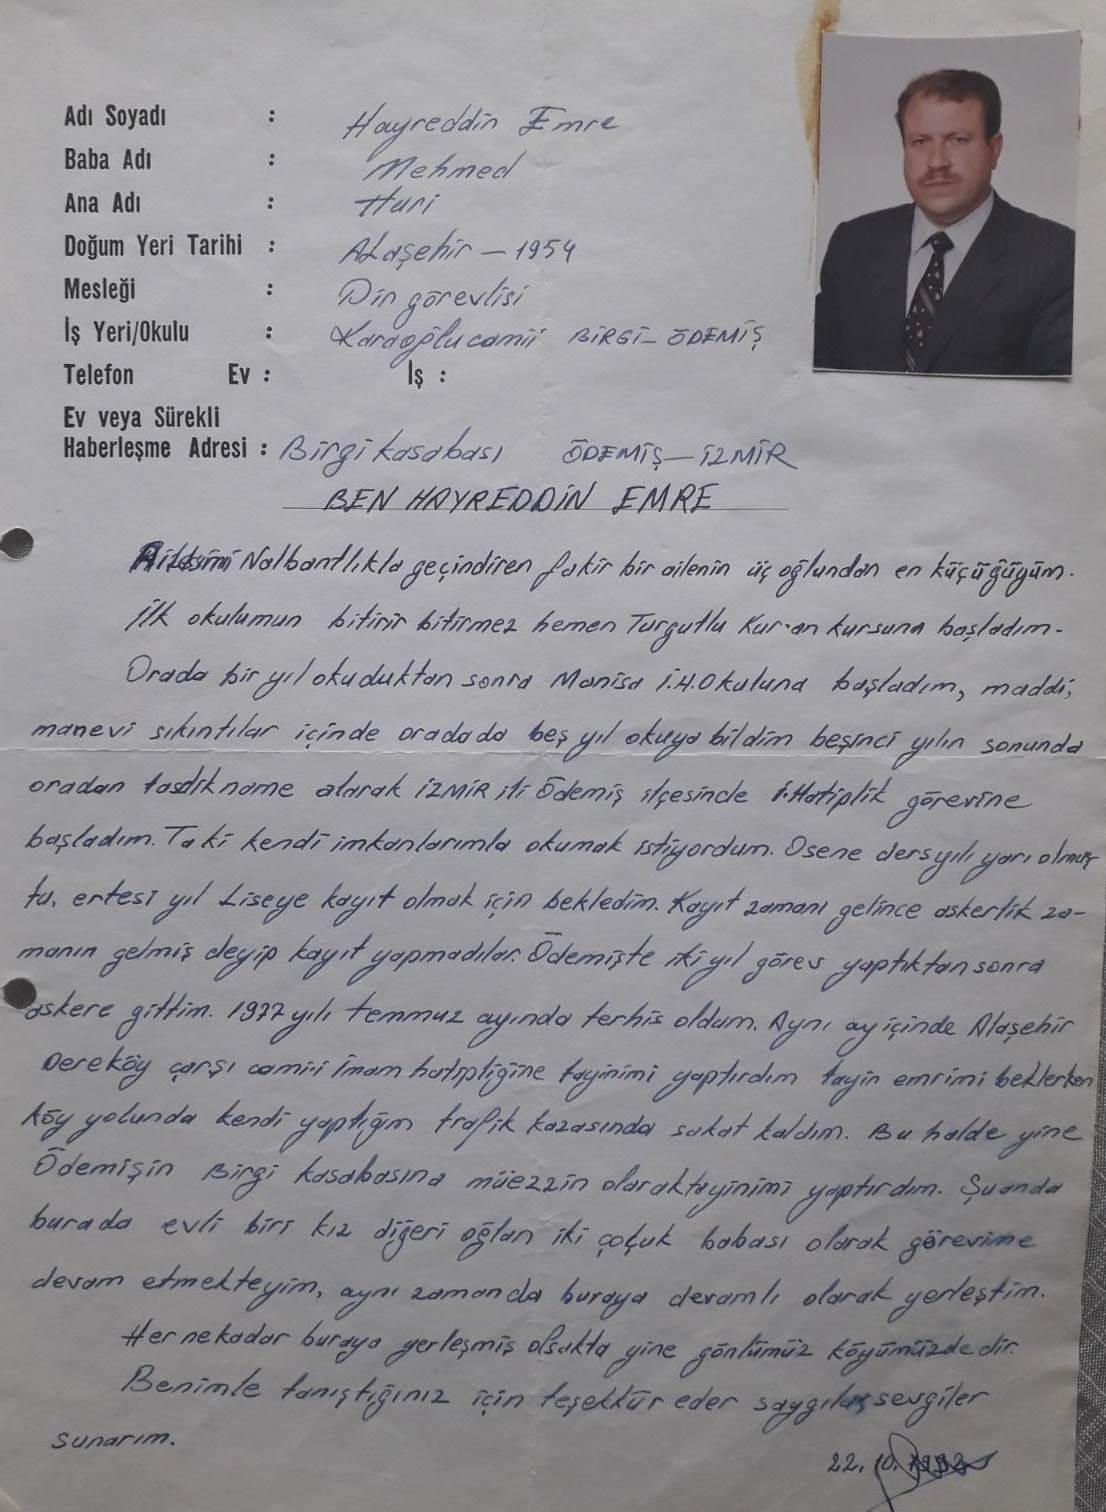 Adı Soyadı : Hayreddin Emre
Baba Adı : Mehmed
Ana Adı : Huri
Doğum Yeri Tarihi : Alaşehir – 1954
Mesleği : Din görevlisi
İş Yeri/Okulu : Karaoğlu camii BİRGİ – ÖDEMİŞ
Telefon Ev : İş :
Ev veya Sürekli
Haberleşme Adresi : Birgi kasabası ÖDEMİŞ – İZMİR
BEN HAYREDDİN EMRE
Nalbantlıkla geçindiren fakir bir ailenin üç oğlundan en küçüğüyüm.
İlk okulumun bitirir bitirmez hemen Turgutlu Kur-an kursuna başladım.
Orada bir yıl okuduktan sonra Manisa İ.H.Okuluna başladım, maddi,
manevi sıkıntılar içinde oradada beş yıl okuya bildim beşinci yılın sonunda
oradan tasdikname alarak İZMİR ili Ödemiş ilçesinde İ.Hatiplik görevine
başladım. Taki kendi imkanlarımla okumak istiyordum. Osene dersyılı yarı olmuş-
tu, ertesi yıl Liseye kayıt olmak için bekledim. Kayıt zamanı gelince askerlik za-
manın gelmiş deyip kayıt yapmadılar. Ödemişte iki yıl görev yaptıktan sonra
askere gittim. 1977 yılı temmuz ayında terhis oldum. Aynı ay içinde Alaşehir
Dereköy çarşı camii İmam hatipliğine tayinimi yaptırdım tayin emrimi beklerken
köy yolunda kendi yaptığım trafik kazasında sakat kaldım. Bu halde yine
Ödemişin Birgi kasabasına müezzin olarak tayinimi yaptırdım. Şuanda
burada evli biri kız diğeri oğlan iki çocuk babası olarak görevime
devam etmekteyim, aynı zamanda buraya devamlı olarak yerleştim.
Her nekadar buraya yerleşmiş olsakta yine gönlümüz köyümüzdedir.
Benimle tanıştığınız için teşekkür eder saygılar sevgiler
sunarım.
22.10.